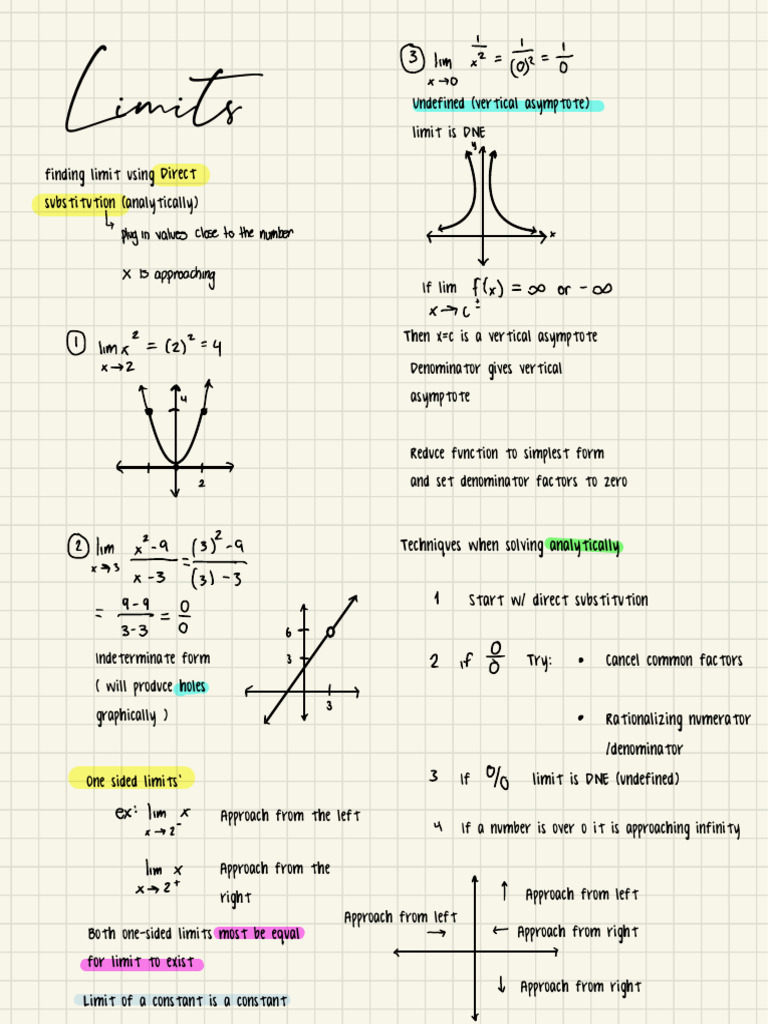 Limits
finding limit using Direct
substitution (analytically)
↳ plug in values close to the number
x is approaching
① lim x² = (2)² = 4
x→2
4
2
② lim x²-9 / x-3 = (3)²-9 / (3)-3
x→3
= 9-9 / 3-3 = 0/0
Indeterminate form
( will produce holes
graphically )
6
3
3
One sided limits'
ex: lim x Approach from the left
x→2⁻
lim x Approach from the
x→2⁺ right
Both one-sided limits most be equal
for limit to exist
Limit of a constant is a constant
③ lim 1/x² = 1/(0)² = 1/0
x→0
Undefined (vertical asymptote)
limit is DNE
y
x
If lim f(x) = ∞ or -∞
x→c±
Then x=c is a vertical asymptote
Denominator gives vertical
asymptote
Reduce function to simplest form
and set denominator factors to zero
Techniques when solving analytically
1 Start w/ direct substitution
2 if 0/0 Try: • Cancel common factors
• Rationalizing numerator
/denominator
3 If % limit is DNE (undefined)
4 If a number is over 0 it is approaching infinity
↑ Approach from left
Approach from left →
← Approach from right
↓ Approach from right